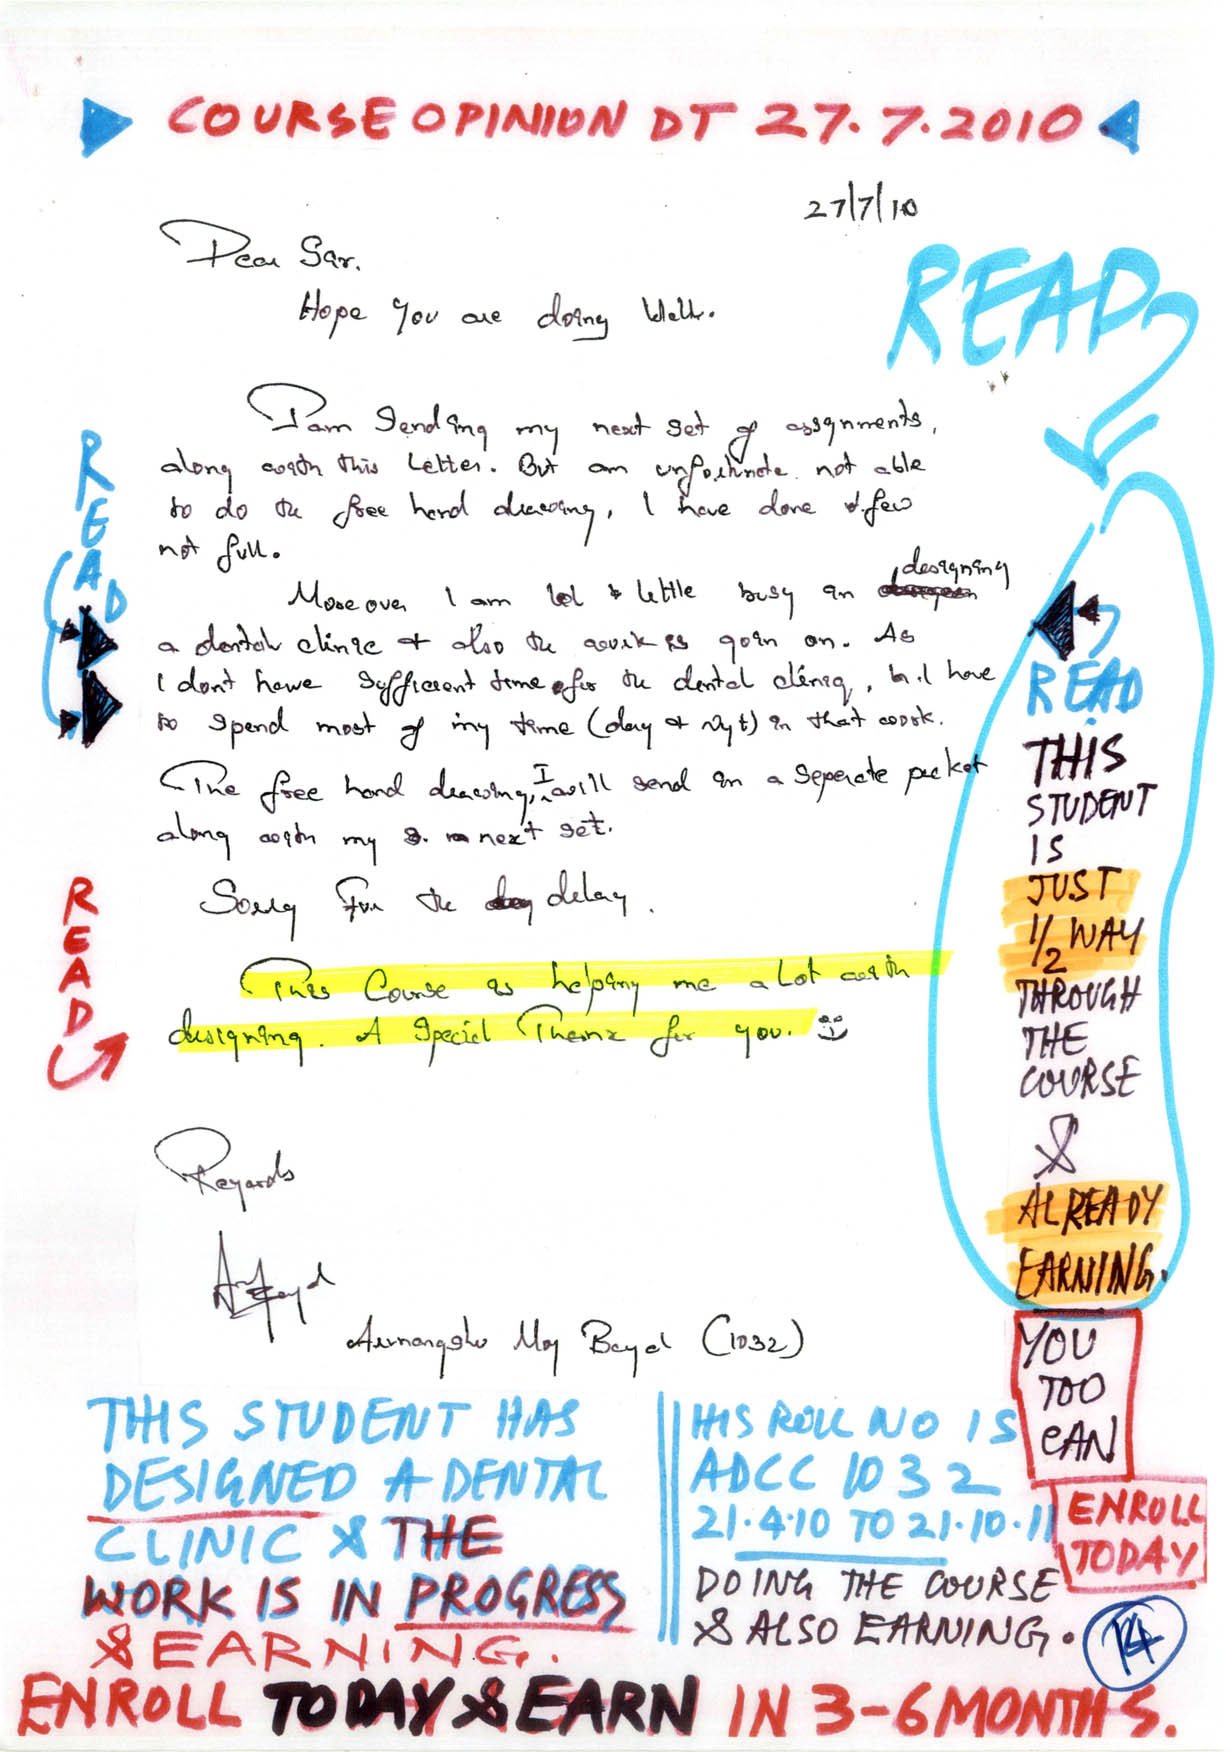 COURSE OPINION DT 27.7.2010
27/7/10
Dear Sir.
Hope you are doing well.
READ
I am sending my next set of assignments,
along with this letter. But am unfortunate not able
to do the free hand drawing, I have done few
not full.
READ
More over I am little busy in designing
a dental clinic & also the work is goin on. As
I don't have sufficient time for the dental cliniq, I have
to spend most of my time (day & nyt) in that work.
The free hand drawing, I will send in a seperate packet
along with my next set.
Sorry for the delay.
READ
This Course is helping me a lot with
designing. A special Thanx for you.
Regards
Moy Bayd (1032)
READ
THIS
STUDENT
IS
JUST
1/2 WAY
THROUGH
THE
COURSE
&
ALREADY
EARNING.
YOU
TOO
CAN
ENROLL
TODAY
THIS STUDENT HAS
DESIGNED A DENTAL
CLINIC & THE
WORK IS IN PROGRESS
& EARNING.
HIS ROLL NO IS
ADCC 1032
21.4.10 TO 21.10.11
DOING THE COURSE
& ALSO EARNING.
ENROLL TODAY & EARN IN 3-6 MONTHS.